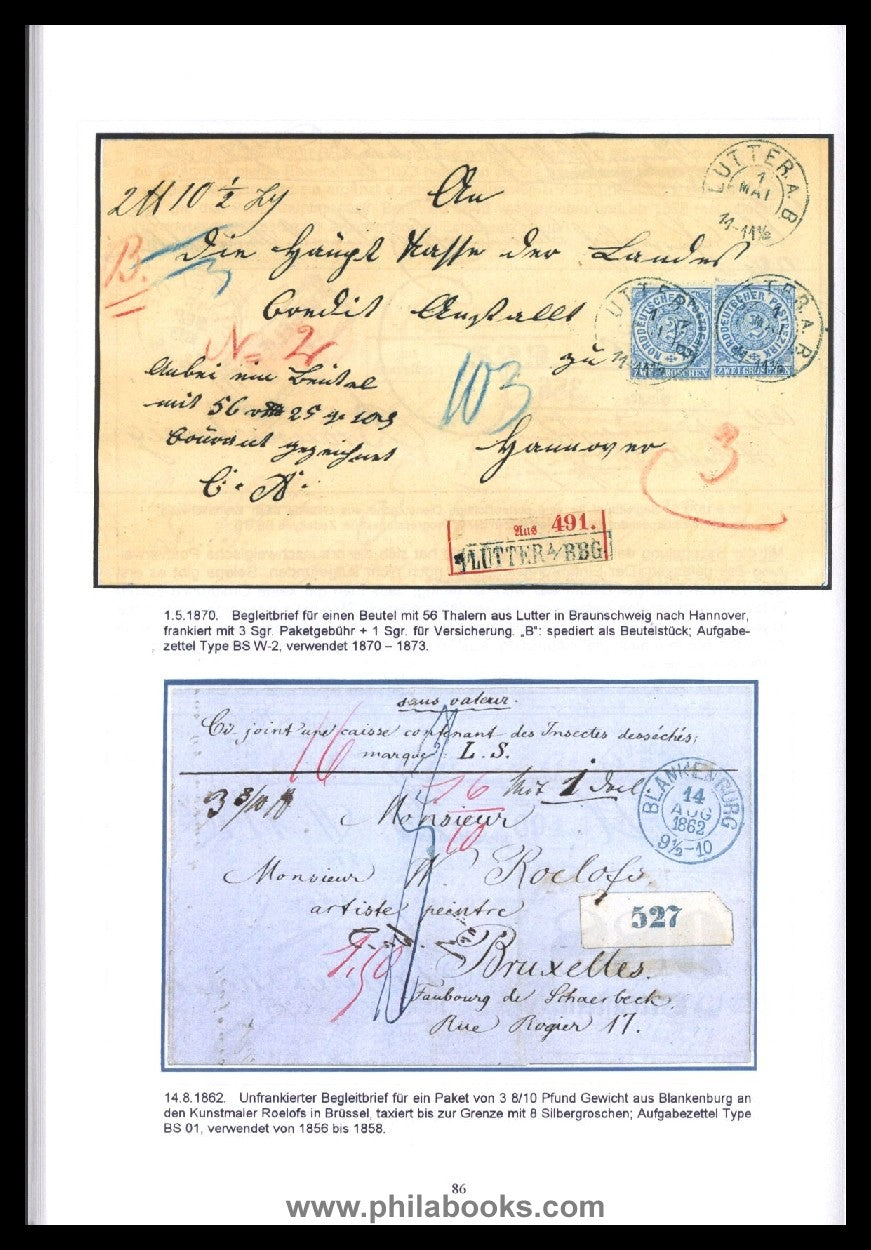 2 10 ½
An
LUTTER. A. B
1
MAI
11-11½
B.
die Haupt Kasse der Landes
Credit Anstallt
zu
LUTTER. A. B
NORDDEUTSCHER POSTBEZIRK
GROSCHEN
ZWEI GROSCHEN
No 2
Anbei ein Beutel
mit 56 25
Courant gezeichnet
C. A.
103
Hannover
3
Aus 491.
LUTTER A/BBG.
1.5.1870. Begleitbrief für einen Beutel mit 56 Thalern aus Lutter in Braunschweig nach Hannover,
frankiert mit 3 Sgr. Paketgebühr + 1 Sgr. für Versicherung. „B“: spediert als Beutelstück; Aufgabe-
zettel Type BS W-2, verwendet 1870 – 1873.
sans valeur.
Ci joint une caisse contenant des Insectes desséchés;
marque L. S.
16
3 8/10
16
10
Mit 1
BLANKENBURG
14
AUG
1862
9½-10
Monsieur
Monsieur W. Roelofs.
artiste peintre
527
Bruxelles.
Faubourg de Schaerbeck.
Rue Rogier 17.
14.8.1862. Unfrankierter Begleitbrief für ein Paket von 3 8/10 Pfund Gewicht aus Blankenburg an
den Kunstmaler Roelofs in Brüssel, taxiert bis zur Grenze mit 8 Silbergroschen; Aufgabezettel Type
BS 01, verwendet von 1856 bis 1858.
86
www.philabooks.com